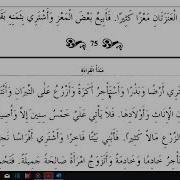 الْعَنْزَتَانِ مَعْزًا كَثِيرًا. فَأَبِيعُ بَعْضَ الْمَعْزِ وَأَشْتَرِي بِثَمَنِهِ
75
مَبْدَأُ الْقِرَاءَةِ
أَرْضًا وَبَذْرًا وَأَسْتَأْجِرُ أَكَرَةً وَأَزْرَعُ عَلَى الثِّيرَانِ
الْإِنَاثِ وَأَوْلَادِهَا. فَلَا يَأْتِي عَلَيَّ خَمْسُ سِنِينَ إِلَّا
الزَّرْعِ مَالًا كَثِيرًا. فَأَبْنِي بَيْتًا فَاخِرًا وَأَشْتَرِي
خَادِمًا وَخَادِمَةً وَأَتَزَوَّجُ امْرَأَةً صَالِحَةً جَمِيلَةً.